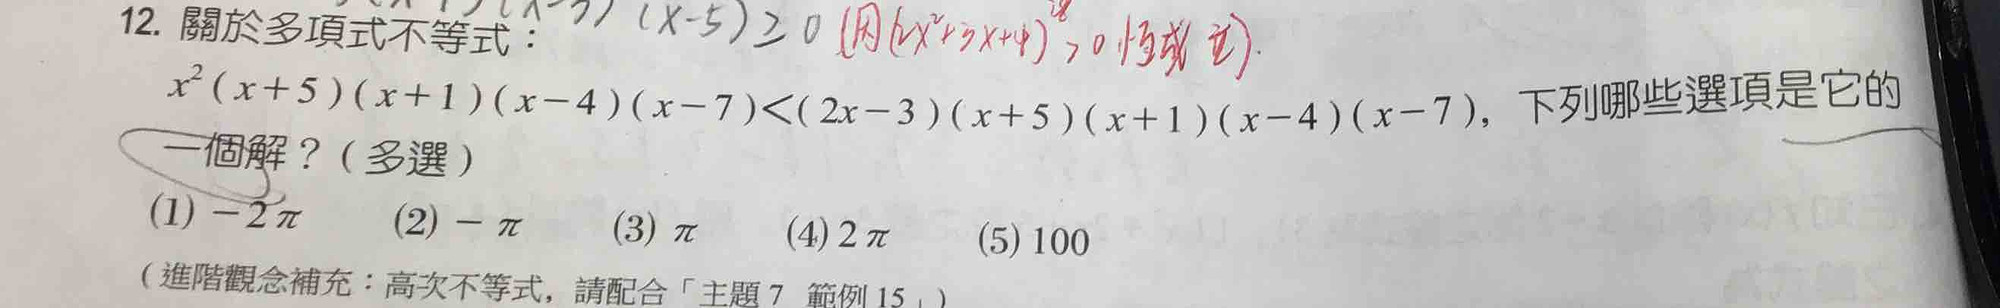 (x-5) ≥ 0 (因(2x²+3x+4)¹⁸>0 恆成立).
12. 關於多項式不等式：
x²(x+5)(x+1)(x-4)(x-7)<(2x-3)(x+5)(x+1)(x-4)(x-7)，下列哪些選項是它的
一個解？(多選)
(1) -2π (2) -π (3) π (4) 2π (5) 100
(進階觀念補充：高次不等式，請配合「主題7 範例15」)